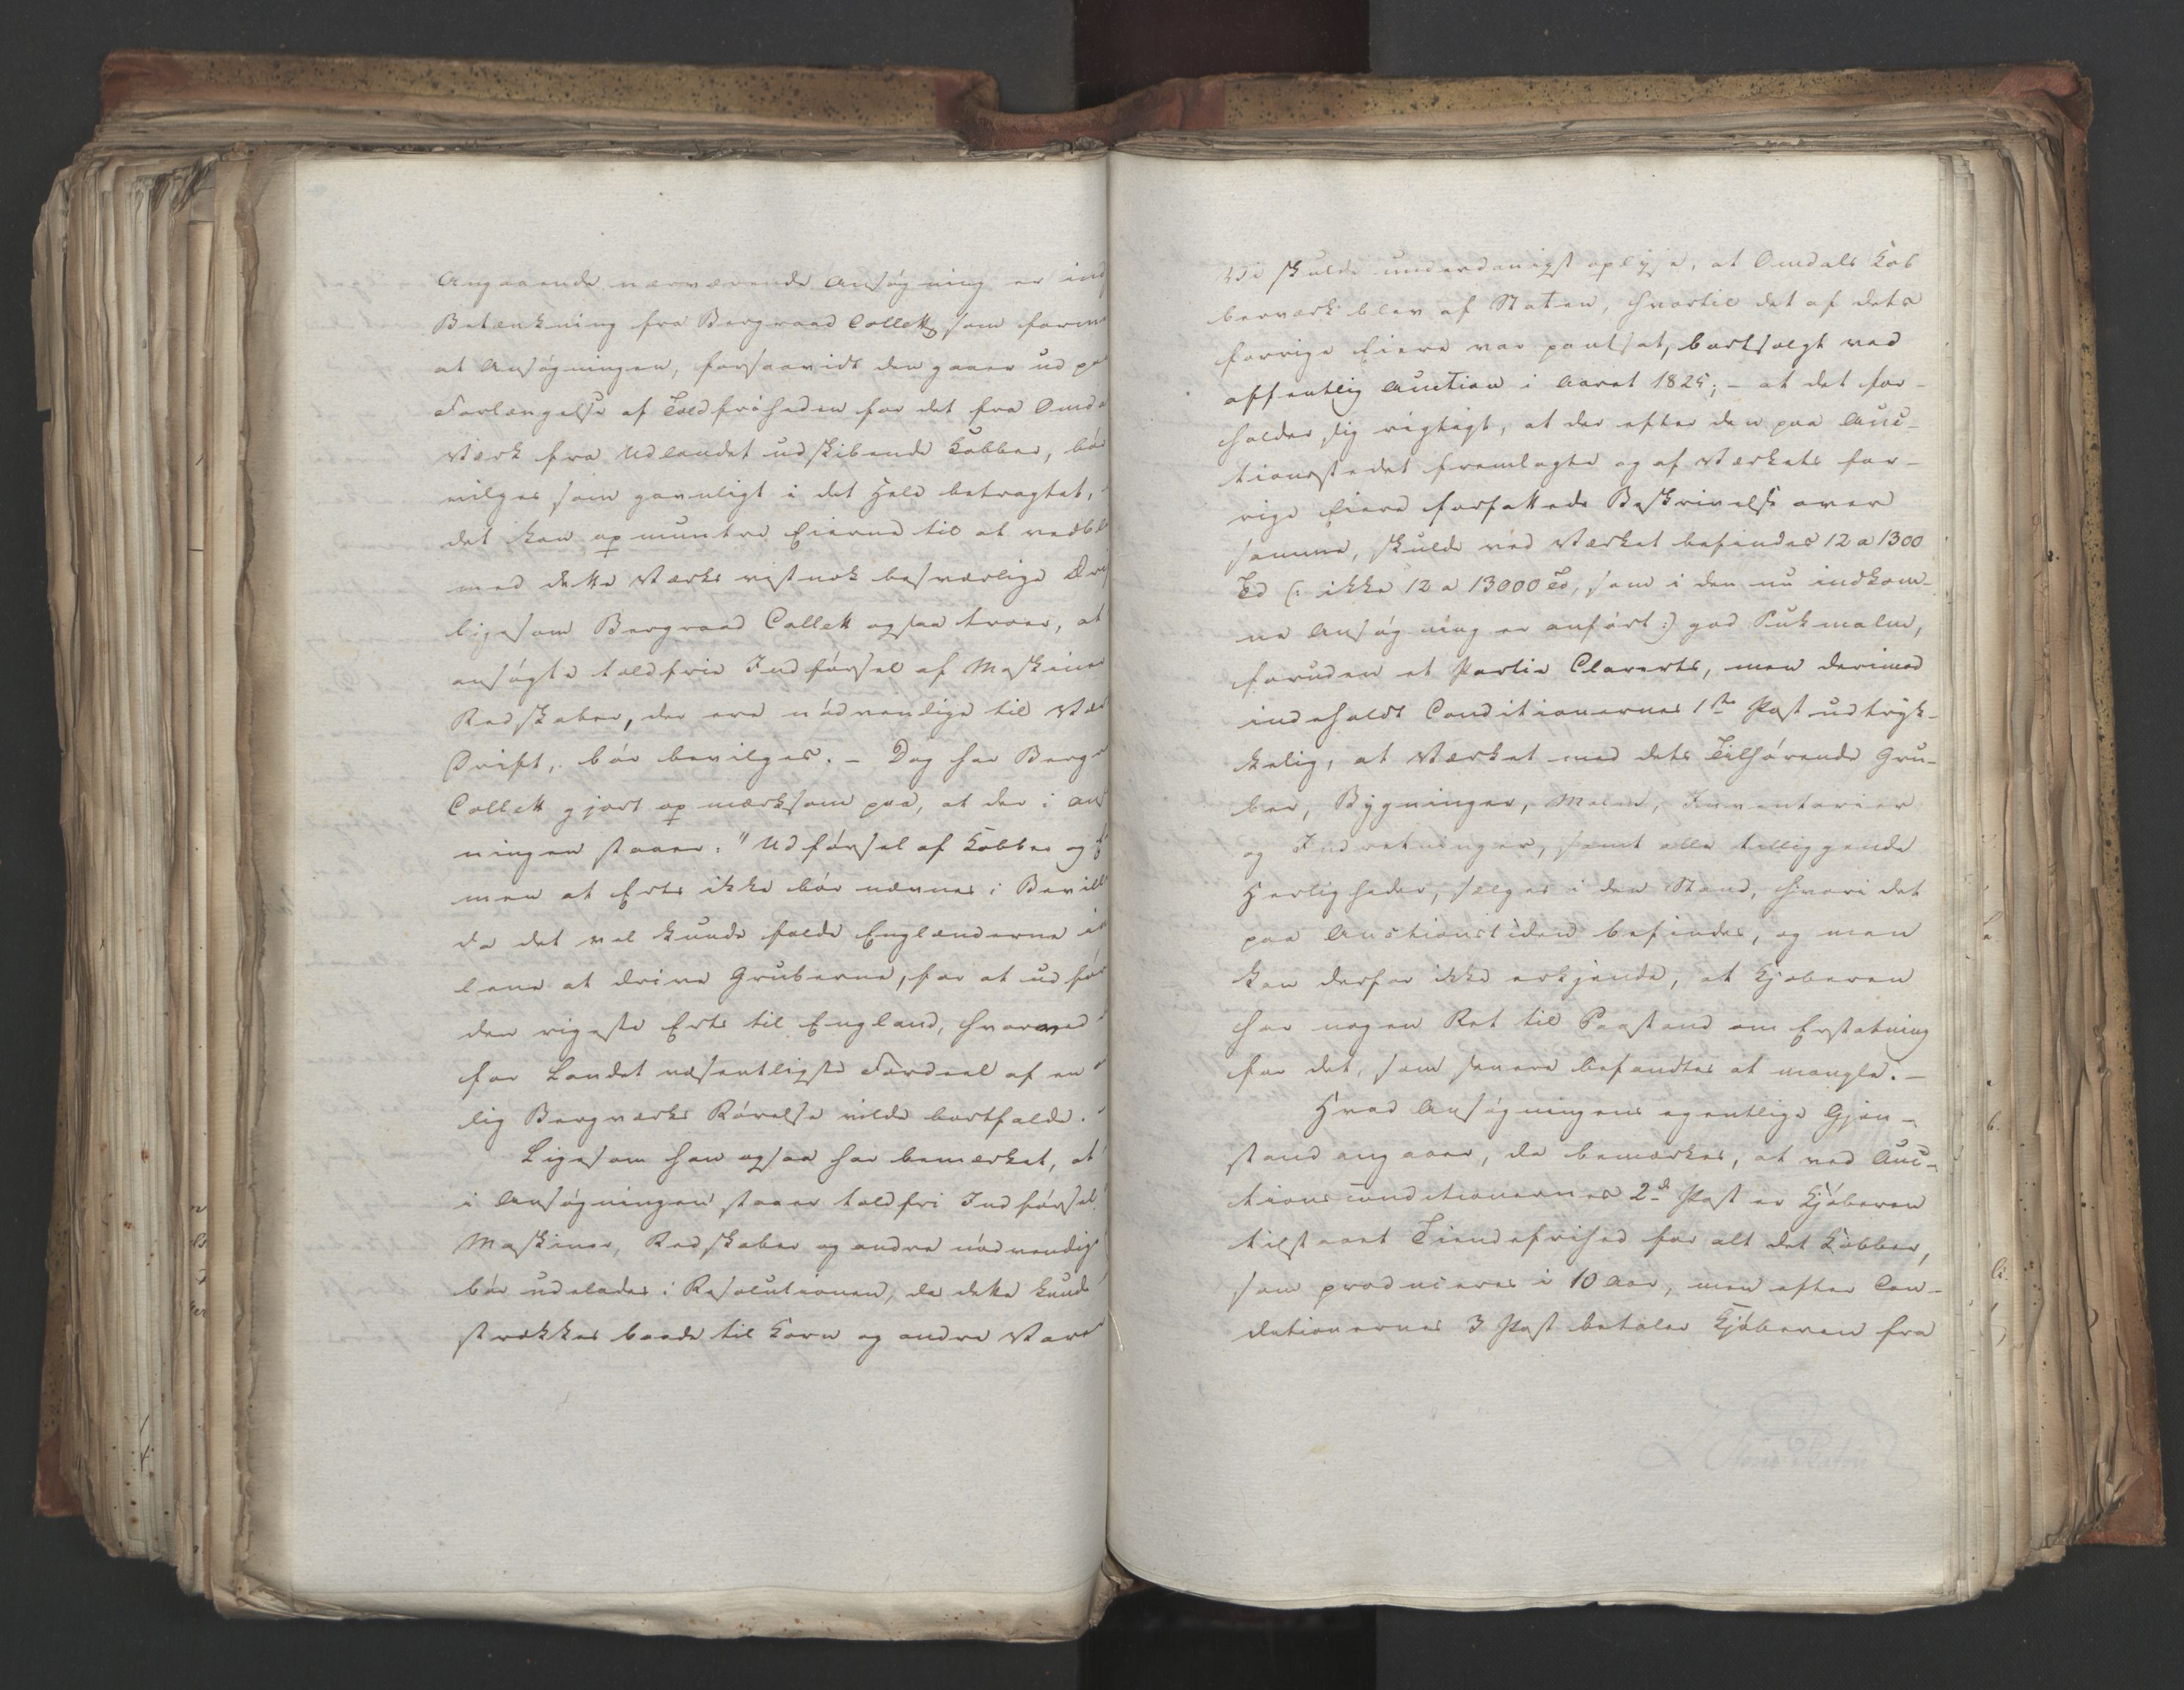 Angaaende nærværende Ansøgning er ind
Betænkning fra Bergraad Collett, som forme
at Ansøgningen, forsaavidt den gaaer ud pa
Forlængelse af Toldfriheden for det fra Omda
Værk fra Udlandet udskibende Kobber, bør
vilges som gavnligt i det Hele betragtet,
det kan opmuntre Eierne til at vedbl
med dette Værks vistnok besværlige Dri
ligesom Bergraad Collett ogsaa troer, at
ansøgte toldfrie Indførsel af Maskiner
Redskaber, der ere nødvendige til Vær
Drift, bør bevilges. – Dog har Bergr
Collett gjort opmærksom paa, at der i Ans
ningen staaer: "Udførsel af Kobber og
men at Erts ikke bør nævnes i Bevill
da det vel kunde falde Englænderne i
lene at drive Gruberne, for at udfør
den rigeste Erts til England, hvorved
for Landet væsentligste Fordeel af en
lig Bergværks Rørelse vilde bortfalde.
Ligesom han ogsaa har bemerket, at
i Ansøgningen staaer toldfri Indførsel
Maskiner, Redskaber og andre nødvendige
bør udelades i Resolutionen, da dette kunde
strækkes baade til Korn og andre Varer
Vi skulde underdanigst oplyse, at Omdals Kob
berværk blev af Staten, hvortil det af dets
forrige Eiere var pantsat, bortsolgt ved
offentlig Auction i Aaret 1825; – at det for-
holder sig rigtigt, at der efter den paa Auc-
tionsstedet fremlagte og af Værkets for-
rige Eiere forfattede Beskrivelse over
samme, skulde ved Værket befindes 12 a 1300
Td (: ikke 12 a 13000 Td, som i den nu indkom-
ne Ansøgning er anført:) god Pukmalm,
foruden et Partie Clarerts, men derimod
indeholdt Conditionernes 1ste Post udtryk-
kelig, at Værket med dets Tilhørende Gru-
ber, Bygninger, Malm, Inventarier
og Indretninger, samt alle tilliggende
Herligheder, sælges i den Stand, hvori det
paa Auctionstiden befindes, og man
kan derfor ikke erkjende, at Kjøberen
har nogen Ret til Paastand om Erstatning
for det, som senere befandtes at mangle. –
Hvad Ansøgningens egentlige Gjen-
stand angaaer, da bemærkes, at ved Auc-
tionsconditionernes 2d Post er Kjøberen
tilstaaet Tiendefrihed for alt det Kobber,
som produceres i 10 Aar, men efter Con-
ditionernes 3 Post betaler Kjøberen fra